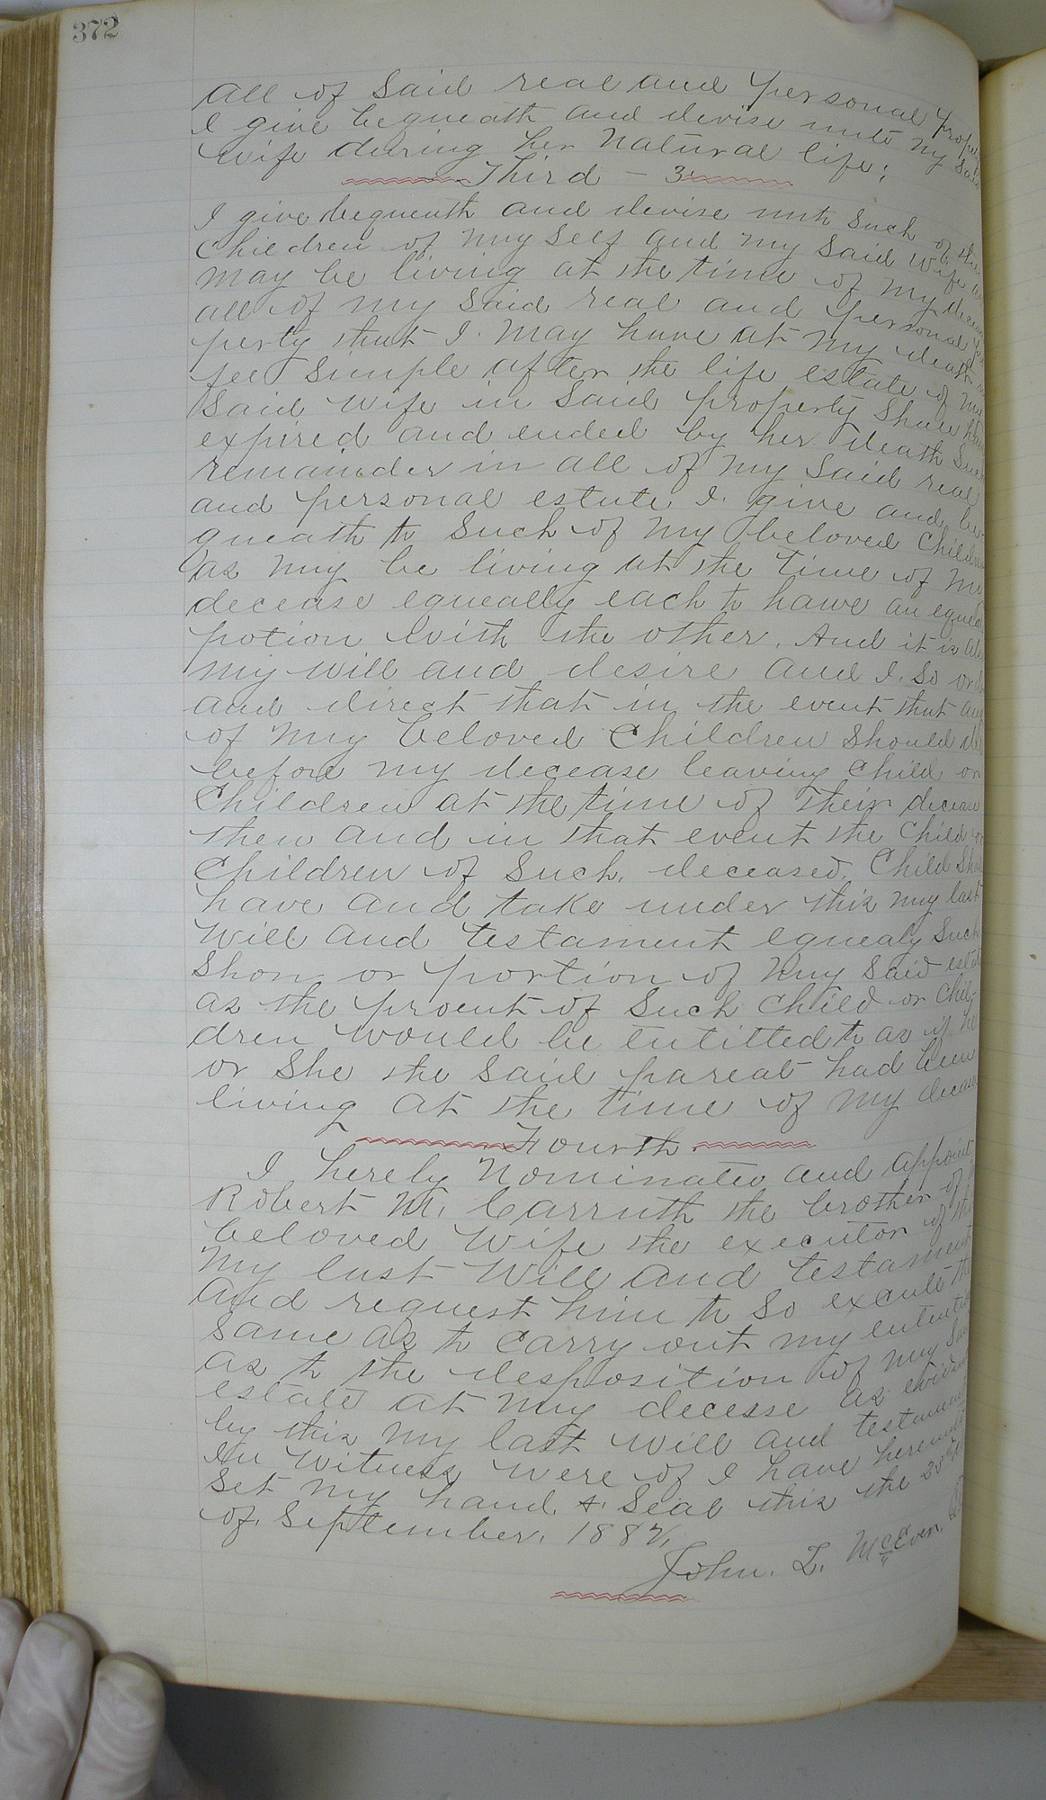 372
all of Said real and personal
I give bequeath and devise unto my Said
wife during her natural life;
Third - 3
I give bequeath and devise unto Such of the
Children of my Self and my Said wife as
may be living at the time of my
all of my Said real and personal
perty that I may have at my death
fee Simple after the life estate of my
Said wife in Said property Shall have
expired and ended by her death Such
remainder in all of my Said real
and personal estate I give and be
queath to Such of my beloved Children
as may be living at the time of my
decease equeally each to have an equal
potion with the other. And it is also
my will and desire and I. So
and direct that in the event that any
of my beloved Children Should die
before my decease leaving Child or
Children at the time of their decease
then and in that event the Child or
Children of Such. deceased. Child Shall
have and take under this my last
Will and testament equealy Such
or portion of my Said
as the of Such Child or Chil-
dren would be entitled to as if he
or She the Said pareat had been
living at the time of my decease
Fourth.
I hereby Nominate and appoint
Robert M. Carruth the brother of
beloved Wife the executor of this
my last Will and testament
And request him to So the
Same as to Carry out my
as to the desposition of my
estate at my decesse as
by this my last will and testament
In Witness were of I have
Set my hand & Seal this the
of. September. 188
John. L. McEven.